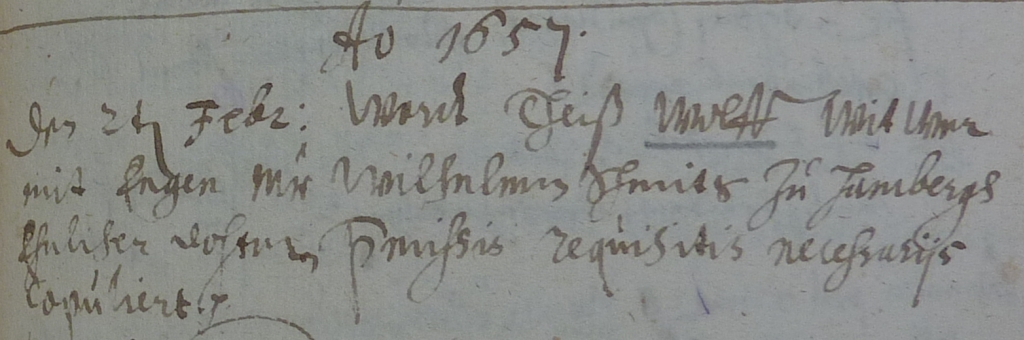 Ao 1657.
Den 2t Febr: Ward Theiß Wolff Witwer
mit Wilhelmen Schmits zu Hambergh
Ehelicher dohter Praemissis requisitis necessariis
Copuliert